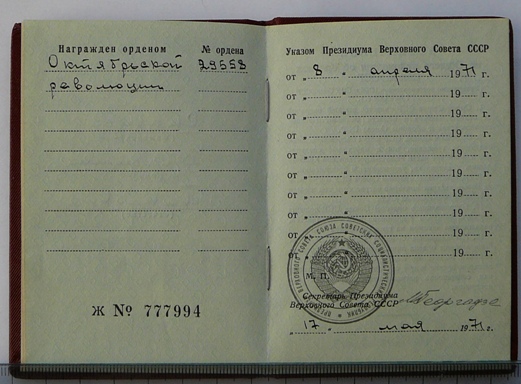 Награжден орденом № ордена
Октябрьской 29558
революции
Ж № 777994
Указом Президиума Верховного Совета СССР
от „ 8 “ апреля 1971 г.
от „ “ 19 г.
от „ “ 19 г.
от „ “ 19 г.
от „ “ 19 г.
от „ “ 19 г.
от „ “ 19 г.
от „ “ 19 г.
от „ “ 19 г.
от „ “ 19 г.
М. П.
Секретарь Президиума
Верховного Совета СССР
МГеоргадзе
„ 17 “ мая 1971 г.